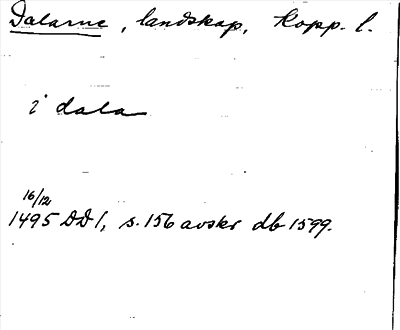 Dalarne, landskap, Kopp. l.
i dala
16/12
1495 DD 1, s. 156 avskr db 1599.